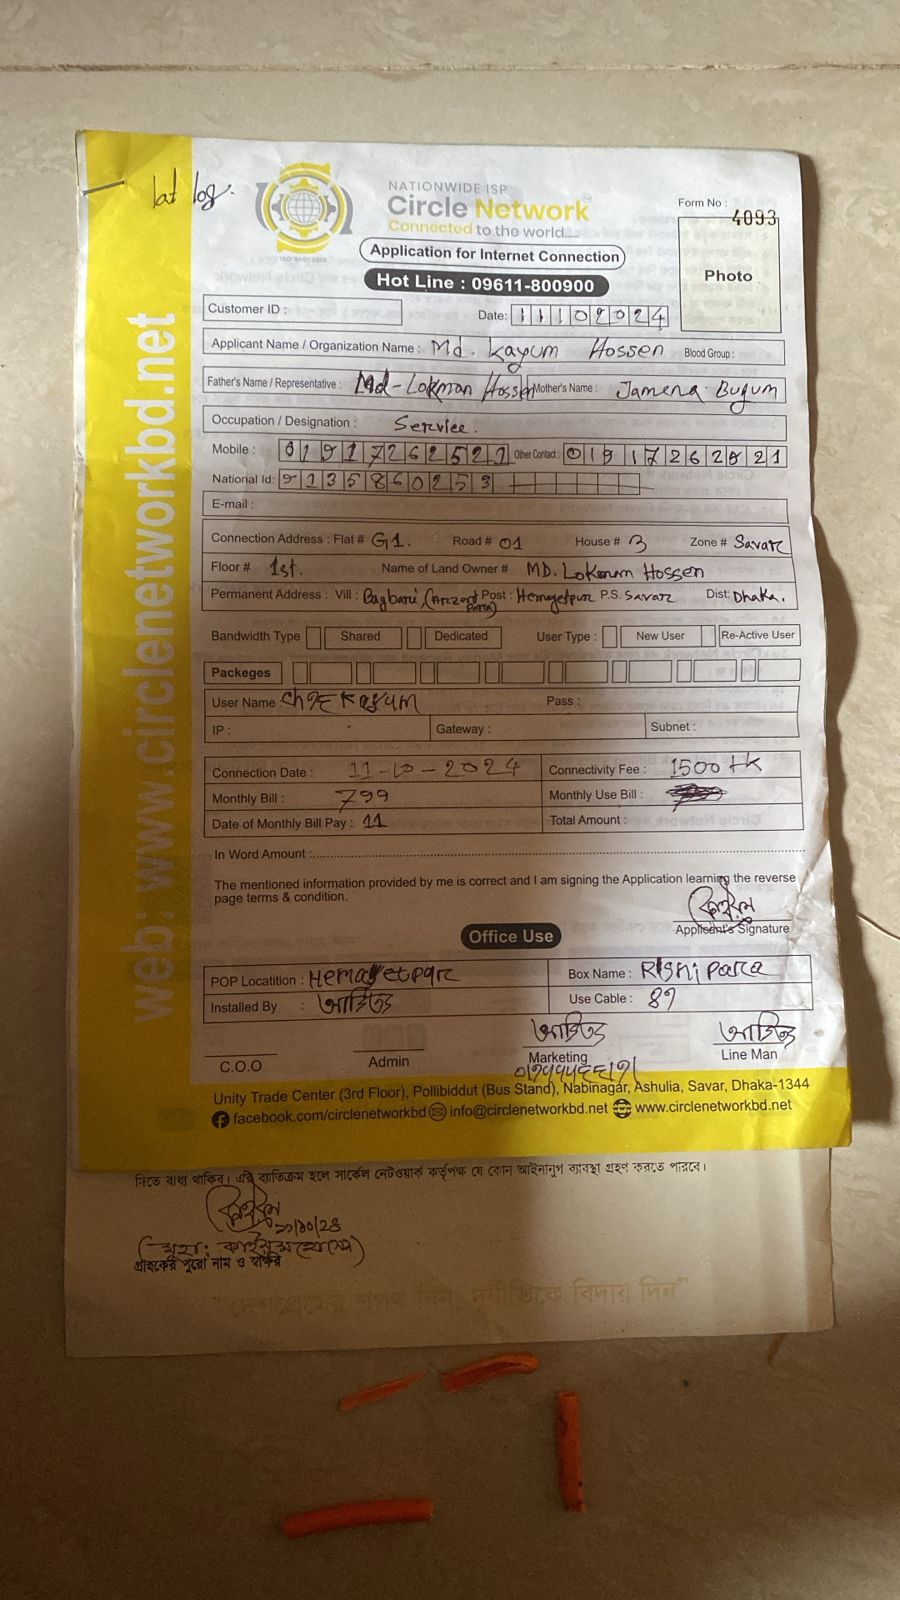 lat log.
NATIONWIDE ISP
Circle Network
Connected to the world....
ISO 9001:2015
Form No :
4093
Photo
Application for Internet Connection
Hot Line : 09611-800900
web: www.circlenetworkbd.net
Customer ID :
Date: 11102024
Applicant Name / Organization Name : Md. Kayum Hossen Blood Group :
Father's Name / Representative : Md-Lokman Hossen Mother's Name : Jamena Bugum
Occupation / Designation : Service.
Mobile : 01917262521 Other Contact : 01917262821
National Id: 9135860253
E-mail :
Connection Address : Flat # G1. Road # 01 House # 3 Zone # Savar
Floor # 1st. Name of Land Owner # MD. Lokman Hossen
Permanent Address : Vill : Bagbari (Para) Post : Hemayetpur P.S. Savar Dist: Dhaka.
Bandwidth Type Shared Dedicated User Type : New User Re-Active User
Packeges
User Name : Kayum Pass :
IP : Gateway : Subnet :
Connection Date : 11-10-2024 Connectivity Fee : 1500 tk
Monthly Bill : 799 Monthly Use Bill :
Date of Monthly Bill Pay : 11 Total Amount :
In Word Amount :
The mentioned information provided by me is correct and I am signing the Application learning the reverse
page terms & condition.
Applicant's Signature
Office Use
POP Locatition : Hemayetpur Box Name : Rishi para
Installed By : Use Cable : 87
C.O.O Admin Marketing Line Man
Unity Trade Center (3rd Floor), Pollibiddut (Bus Stand), Nabinagar, Ashulia, Savar, Dhaka-1344
facebook.com/circlenetworkbd info@circlenetworkbd.net www.circlenetworkbd.net
দিতে বাধ্য থাকিব। এর ব্যতিক্রম হলে সার্কেল নেটওয়ার্ক কর্তৃপক্ষ যে কোন আইনানুগ ব্যবস্থা গ্রহণ করতে পারবে।
গ্রাহকের পুরো নাম ও স্বাক্ষর